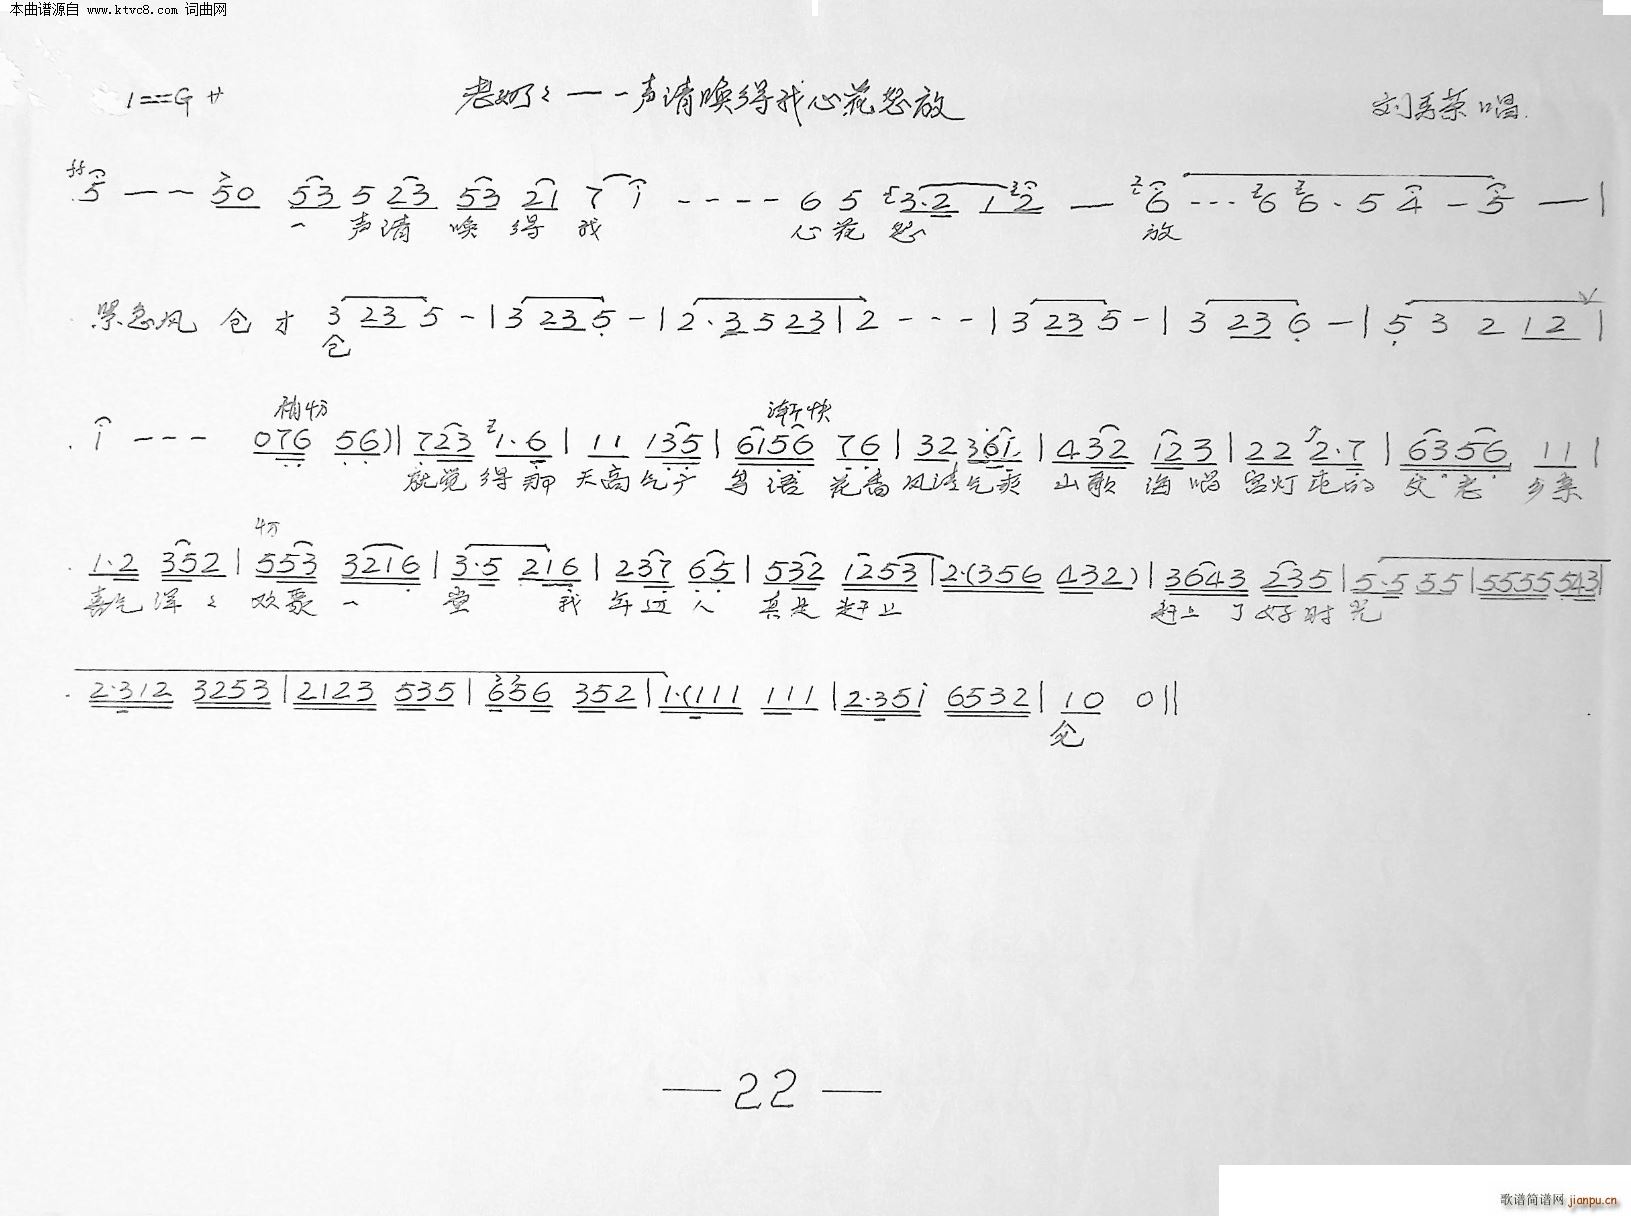 本曲谱源自 www.ktvc8.com 词曲网
1==G 廾 老奶〻 — 一声请唤得我心花怒放 刘秀荣 唱.
5 — — 50 53 5 23 53 21 7 i - - - - 6 5 3·2 1 2 — 6 ··· 6 6· 5 4 - 5 — |
一 声请 唤 得 我 心 花 怒 放
紧急风 仓 才 3 23 5 - | 3 23 5 - | 2·3 5 23 | 2 - - - | 3 23 5 - | 3 23 6 - | 5 3 2 12 |
仓
稍切 渐快
i - - - 076 56) | 723 1·6 | 11 135 | 6156 76 | 32 36i | 432 123 | 22 2·7 | 6356 11 |
就觉 得那 天高气 鸟语 花香 风清气爽 山歌 海唱 宫灯 庄的 父老 乡亲
切
1·2 352 | 553 3216 | 3·5 216 | 237 65 | 532 1253 | 2·(356 432) | 3643 235 | 5·5 55 | 5555 543 |
喜气洋〻 欢聚 一 堂 我 年近人 真是赶上 赶上了好时光
2·312 3253 | 2123 535 | 656 352 | 1·(111 111 | 2·35i 6532 | 10 0 ||
仓
— 22 —
歌谱简谱网 jianpu.cn